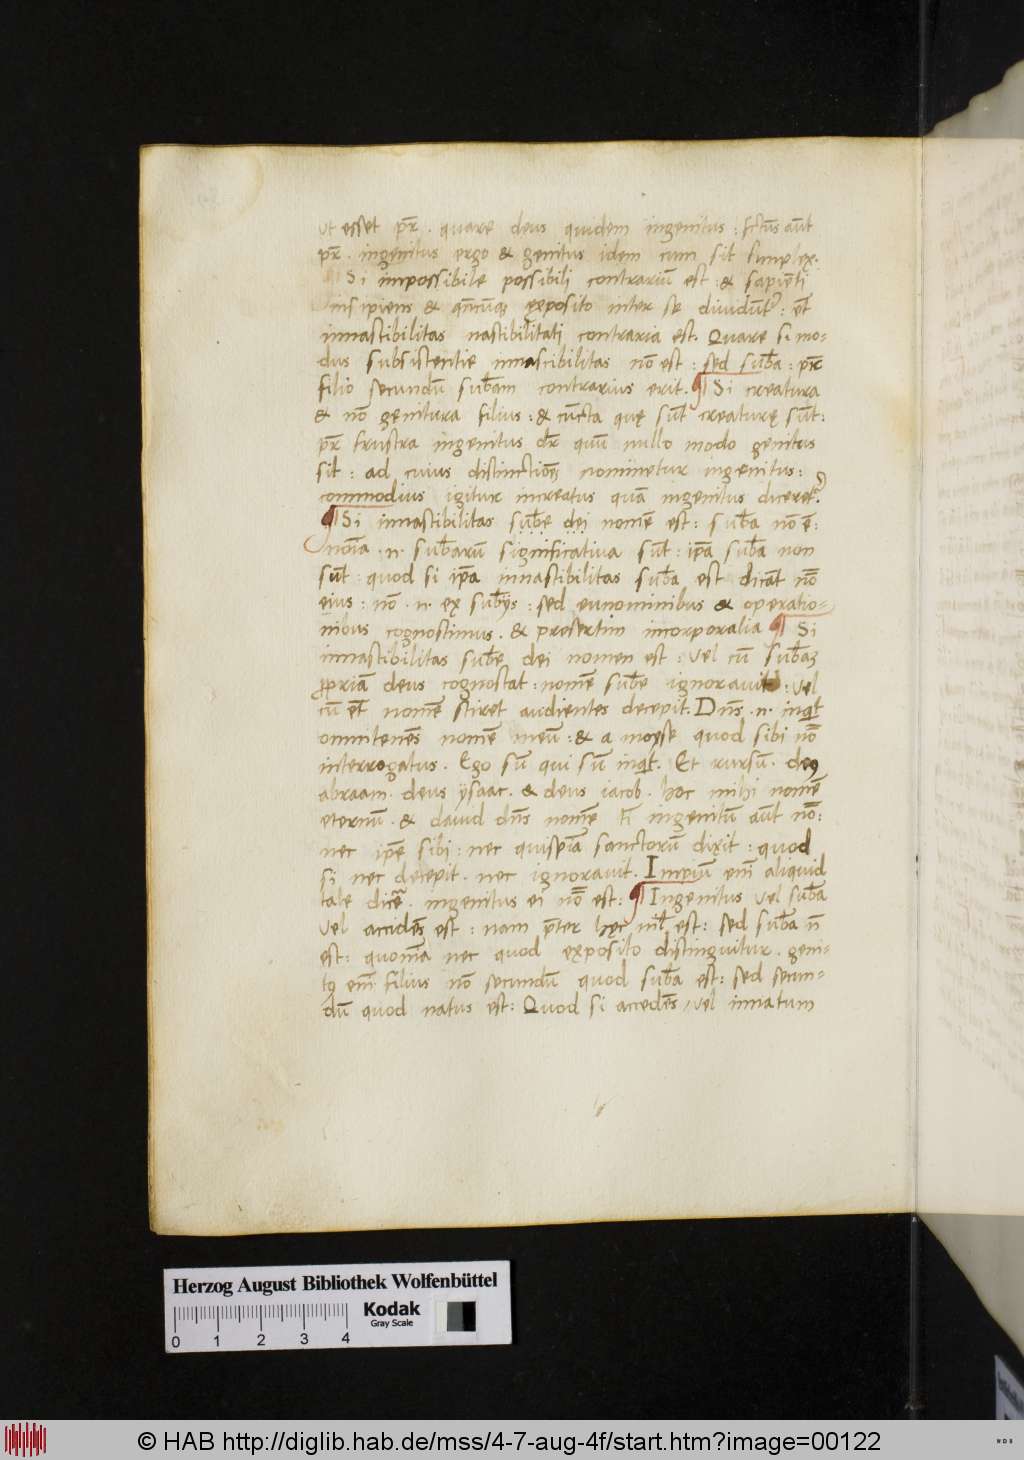 ut esset pr̄. quare deus quidem ingenitus: f̄ctus aūt
pr̄. ingenitus ergo & genitus idem cum sit simplex:
Si impossibile possibili contrariū est: & sapiēti
insipiens & exposito inter se diuidūtr: et̄
innascibilitas nascibilitati contraria est. Quare si mo-
dus subsistentie innascibilitas nō est: sed sub̄a: pr̄
filio secundū sub̄am contrarius erit. ¶ Si creatura
& nō genitura filius: & cūcta quę sūt creaturę sūt:
pr̄ frustra ingenitus dr̄ quū nullo modo genitus
sit: ad cuius distinctiōē nominetur ingenitus:
commodius igitur increatus quā ingenitus diceret.
¶ Si innascibilitas sub̄e dei nomē est: sub̄a nō ē:
noīa .n. sub̄arū significatiua sūt: ip̄a sub̄a non
sūt: quod si ip̄a innascibilitas sub̄a est dicāt nō̄
eius: nō .n. ex sub̄ijs: sed eunominibus & operatio-
nibus cognoscimus. & presertim incorporalia ¶ Si
innascibilitas sub̄e dei nomen est: vel cū sub̄aȝ
ꝓpriā deus cognoscat: nomē sub̄e ignorauit: vel
cū et̄ nomē sciret audientes decepit. Dn̄s .n. inqt
omnitenēs nomē meū: & a moyse quod sibi nō̄
interrogatus. Ego sū qui sū inqt. Et rursū. deꝰ
abraam. deus ysaac. & deus iacob. hoc mihi nomē
eternū. & dauid dn̄s nomē t̄ ingenitū aūt nō̄:
nec ip̄e sibi: nec quispiā sanctorū dixit: quod
si nec decepit. nec ignorauit. Impiū em̄ aliquid
tale dicē. ingenitus ei nō̄ est: ¶ Ingenitus vel sub̄a
vel accidēs est: nam p̄ter hęc nil̄ est: sed sub̄a n̄
est: quoniā nec quod exposito distinguitur. geni-
tꝰ em̄ filius nō secundū quod sub̄a est: sed secun-
dū quod natus est: Quod si accedēs, vel innatum
Herzog August Bibliothek Wolfenbüttel
0 1 2 3 4
Kodak
Gray Scale
© HAB http://diglib.hab.de/mss/4-7-aug-4f/start.htm?image=00122